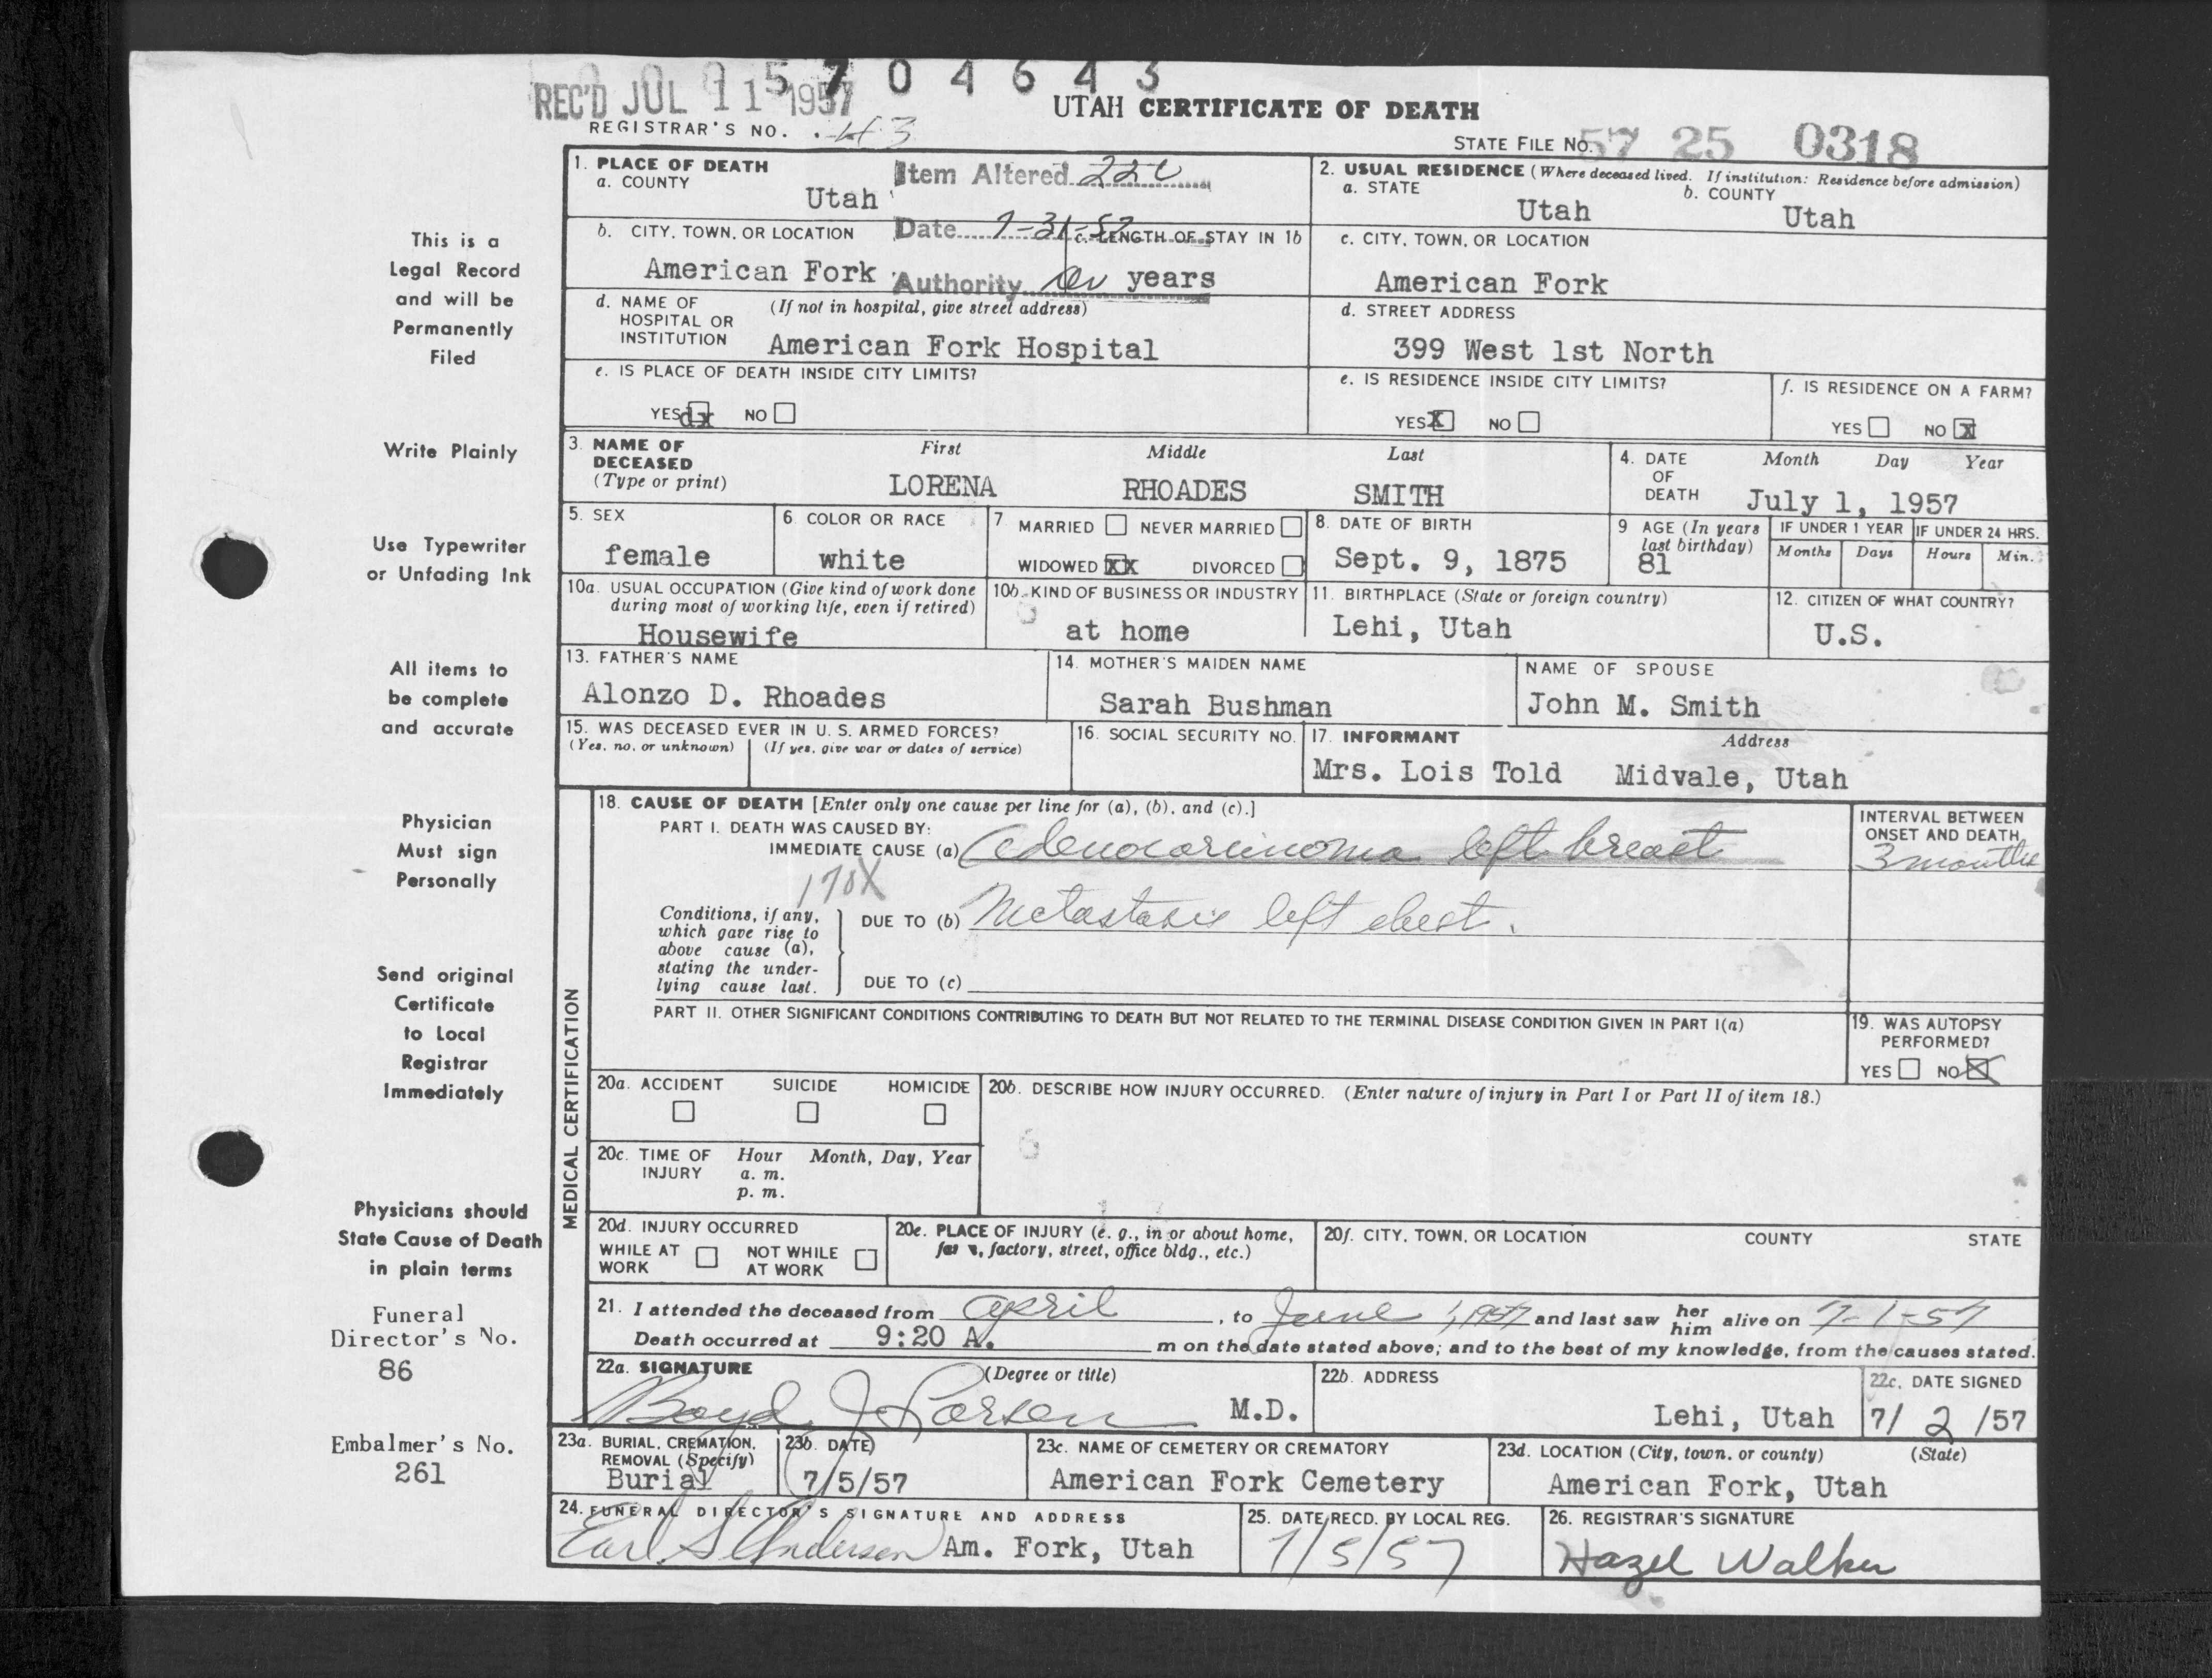 0 0 0 5 7 0 4 6 4 3
REC'D JUL 11 1957
UTAH CERTIFICATE OF DEATH
REGISTRAR'S NO. 43
STATE FILE NO. 57 25 0318
This is a
Legal Record
and will be
Permanently
Filed
Write Plainly
Use Typewriter
or Unfading Ink
All items to
be complete
and accurate
Physician
Must sign
Personally
Send original
Certificate
to Local
Registrar
Immediately
Physicians should
State Cause of Death
in plain terms
Funeral
Director's No.
86
Embalmer's No.
261
1. PLACE OF DEATH
a. COUNTY
Utah
Item Altered 22c
Date 7-31-57
Authority
2. USUAL RESIDENCE (Where deceased lived. If institution: Residence before admission)
a. STATE
Utah
b. COUNTY
Utah
b. CITY, TOWN, OR LOCATION
American Fork
c. LENGTH OF STAY IN 1b
years
c. CITY, TOWN, OR LOCATION
American Fork
d. NAME OF HOSPITAL OR INSTITUTION
(If not in hospital, give street address)
American Fork Hospital
d. STREET ADDRESS
399 West 1st North
e. IS PLACE OF DEATH INSIDE CITY LIMITS?
YES dx NO
e. IS RESIDENCE INSIDE CITY LIMITS?
YES X NO
f. IS RESIDENCE ON A FARM?
YES NO X
3. NAME OF DECEASED
(Type or print)
First Middle Last
LORENA RHOADES SMITH
4. DATE OF DEATH
Month Day Year
July 1, 1957
5. SEX
female
6. COLOR OR RACE
white
7. MARRIED NEVER MARRIED
WIDOWED XX DIVORCED
8. DATE OF BIRTH
Sept. 9, 1875
9 AGE (In years last birthday)
81
IF UNDER 1 YEAR IF UNDER 24 HRS.
Months Days Hours Min.
10a. USUAL OCCUPATION (Give kind of work done during most of working life, even if retired)
Housewife
10b. KIND OF BUSINESS OR INDUSTRY
at home
11. BIRTHPLACE (State or foreign country)
Lehi, Utah
12. CITIZEN OF WHAT COUNTRY?
U.S.
13. FATHER'S NAME
Alonzo D. Rhoades
14. MOTHER'S MAIDEN NAME
Sarah Bushman
NAME OF SPOUSE
John M. Smith
15. WAS DECEASED EVER IN U. S. ARMED FORCES?
(Yes, no, or unknown) (If yes, give war or dates of service)
16. SOCIAL SECURITY NO.
17. INFORMANT Address
Mrs. Lois Told Midvale, Utah
MEDICAL CERTIFICATION
18. CAUSE OF DEATH [Enter only one cause per line for (a), (b), and (c).]
PART I. DEATH WAS CAUSED BY:
IMMEDIATE CAUSE (a) Adenocarcinoma left breast
170X
INTERVAL BETWEEN ONSET AND DEATH
3 months
Conditions, if any, which gave rise to above cause (a), stating the underlying cause last.
DUE TO (b) Metastasis left chest.
DUE TO (c)
PART II. OTHER SIGNIFICANT CONDITIONS CONTRIBUTING TO DEATH BUT NOT RELATED TO THE TERMINAL DISEASE CONDITION GIVEN IN PART I(a)
19. WAS AUTOPSY PERFORMED?
YES NO X
20a. ACCIDENT SUICIDE HOMICIDE
20b. DESCRIBE HOW INJURY OCCURRED. (Enter nature of injury in Part I or Part II of item 18.)
20c. TIME OF INJURY
Hour Month, Day, Year
a. m.
p. m.
20d. INJURY OCCURRED
WHILE AT WORK NOT WHILE AT WORK
20e. PLACE OF INJURY (e. g., in or about home, factory, street, office bldg., etc.)
20f. CITY, TOWN, OR LOCATION COUNTY STATE
21. I attended the deceased from April, to June 1, 1957 and last saw her him alive on 7-1-57
Death occurred at 9:20 A. m on the date stated above; and to the best of my knowledge, from the causes stated.
22a. SIGNATURE (Degree or title)
Boyd J Larsen M.D.
22b. ADDRESS
Lehi, Utah
22c. DATE SIGNED
7/ 2 /57
23a. BURIAL, CREMATION, REMOVAL (Specify)
Burial
23b. DATE
7/5/57
23c. NAME OF CEMETERY OR CREMATORY
American Fork Cemetery
23d. LOCATION (City, town, or county) (State)
American Fork, Utah
24. FUNERAL DIRECTOR'S SIGNATURE AND ADDRESS
Earl S Anderson Am. Fork, Utah
25. DATE RECD. BY LOCAL REG.
7/5/57
26. REGISTRAR'S SIGNATURE
Hazel Walker